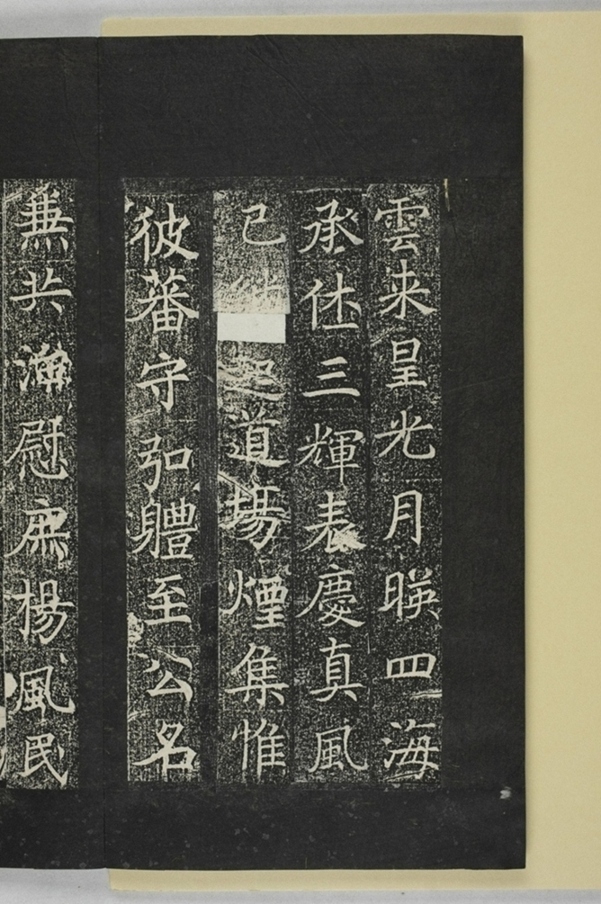 雲来呈光月暎四海
承仕三輝表慶真風
已 起道場煙集惟
彼蕃守弘體至公名
無共漁慰庶楊風民